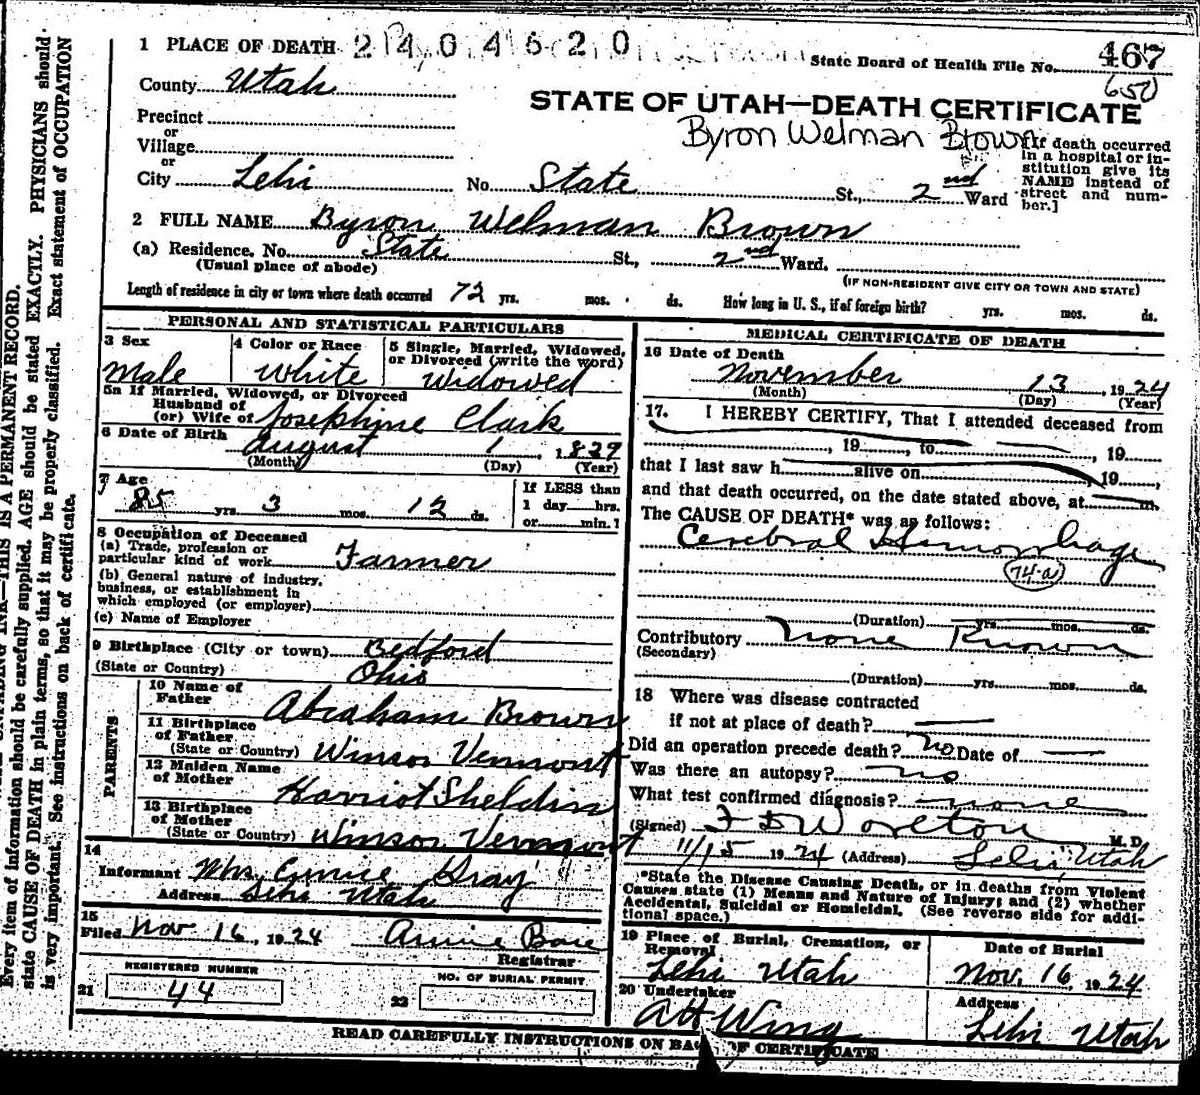 1 PLACE OF DEATH 2404620
State Board of Health File No. 467
County Utah
650
STATE OF UTAH—DEATH CERTIFICATE
Byron Welman Brown
Precinct
or
Village
or
City Lehi No. State St., 2nd Ward
[If death occurred
in a hospital or in-
stitution give its
NAME instead of
street and num-
ber.]
2 FULL NAME Byron Welman Brown
(a) Residence. No. State St., 2nd Ward.
(Usual place of abode) (IF NON-RESIDENT GIVE CITY OR TOWN AND STATE)
Length of residence in city or town where death occurred 72 yrs. mos. ds. How long in U. S., if of foreign birth? yrs. mos. ds.
PERSONAL AND STATISTICAL PARTICULARS
3 Sex
Male
4 Color or Race
White
5 Single, Married, Widowed,
or Divorced (write the word)
Widowed
5a If Married, Widowed, or Divorced
Husband of
(or) Wife of Josephine Clark
6 Date of Birth
August 1, 1839
(Month) (Day) (Year)
7 Age
85 yrs. 3 mos. 12 ds.
If LESS than
1 day hrs.
or min.?
8 Occupation of Deceased
(a) Trade, profession or
particular kind of work Farmer
(b) General nature of industry,
business, or establishment in
which employed (or employer)
(c) Name of Employer
9 Birthplace (City or town) Bedford
(State or Country) Ohio
PARENTS
10 Name of
Father Abraham Brown
11 Birthplace
of Father
(State or Country) Winsor Vermont
12 Maiden Name
of Mother Harriot Sheldin
13 Birthplace
of Mother
(State or Country) Winsor Vermont
14
Informant Mrs. Gray
Address Lehi Utah
15
Filed Nov 16, 1924 Annie
Registrar
REGISTERED NUMBER
21 44
NO. OF BURIAL PERMIT
22
MEDICAL CERTIFICATE OF DEATH
16 Date of Death
November 13, 1924
(Month) (Day) (Year)
17. I HEREBY CERTIFY, That I attended deceased from
, 19 , to , 19
that I last saw h alive on 19 ,
and that death occurred, on the date stated above, at m.
The CAUSE OF DEATH* was as follows:
Cerebral Hemorrhage
74-a
(Duration) yrs. mos. ds.
Contributory none Known
(Secondary)
(Duration) yrs. mos. ds.
18 Where was disease contracted
if not at place of death?
Did an operation precede death? no Date of
Was there an autopsy? no
What test confirmed diagnosis? none
(Signed) F D Worlton M.D.
11/15 1924 (Address) Lehi, Utah
*State the Disease Causing Death, or in deaths from Violent
Causes, state (1) Means and Nature of Injury; and (2) whether
Accidental, Suicidal or Homicidal. (See reverse side for addi-
tional space.)
19 Place of Burial, Cremation, or
Removal
Lehi Utah
Date of Burial
Nov. 16, 1924
20 Undertaker
A H Wing
Address
Lehi Utah
READ CAREFULLY INSTRUCTIONS ON BACK OF CERTIFICATE
INK—THIS IS A PERMANENT RECORD.
Every item of information should be carefully supplied. AGE should be stated EXACTLY. PHYSICIANS should
state CAUSE OF DEATH in plain terms, so that it may be properly classified. Exact statement of OCCUPATION
is very important. See instructions on back of certificate.